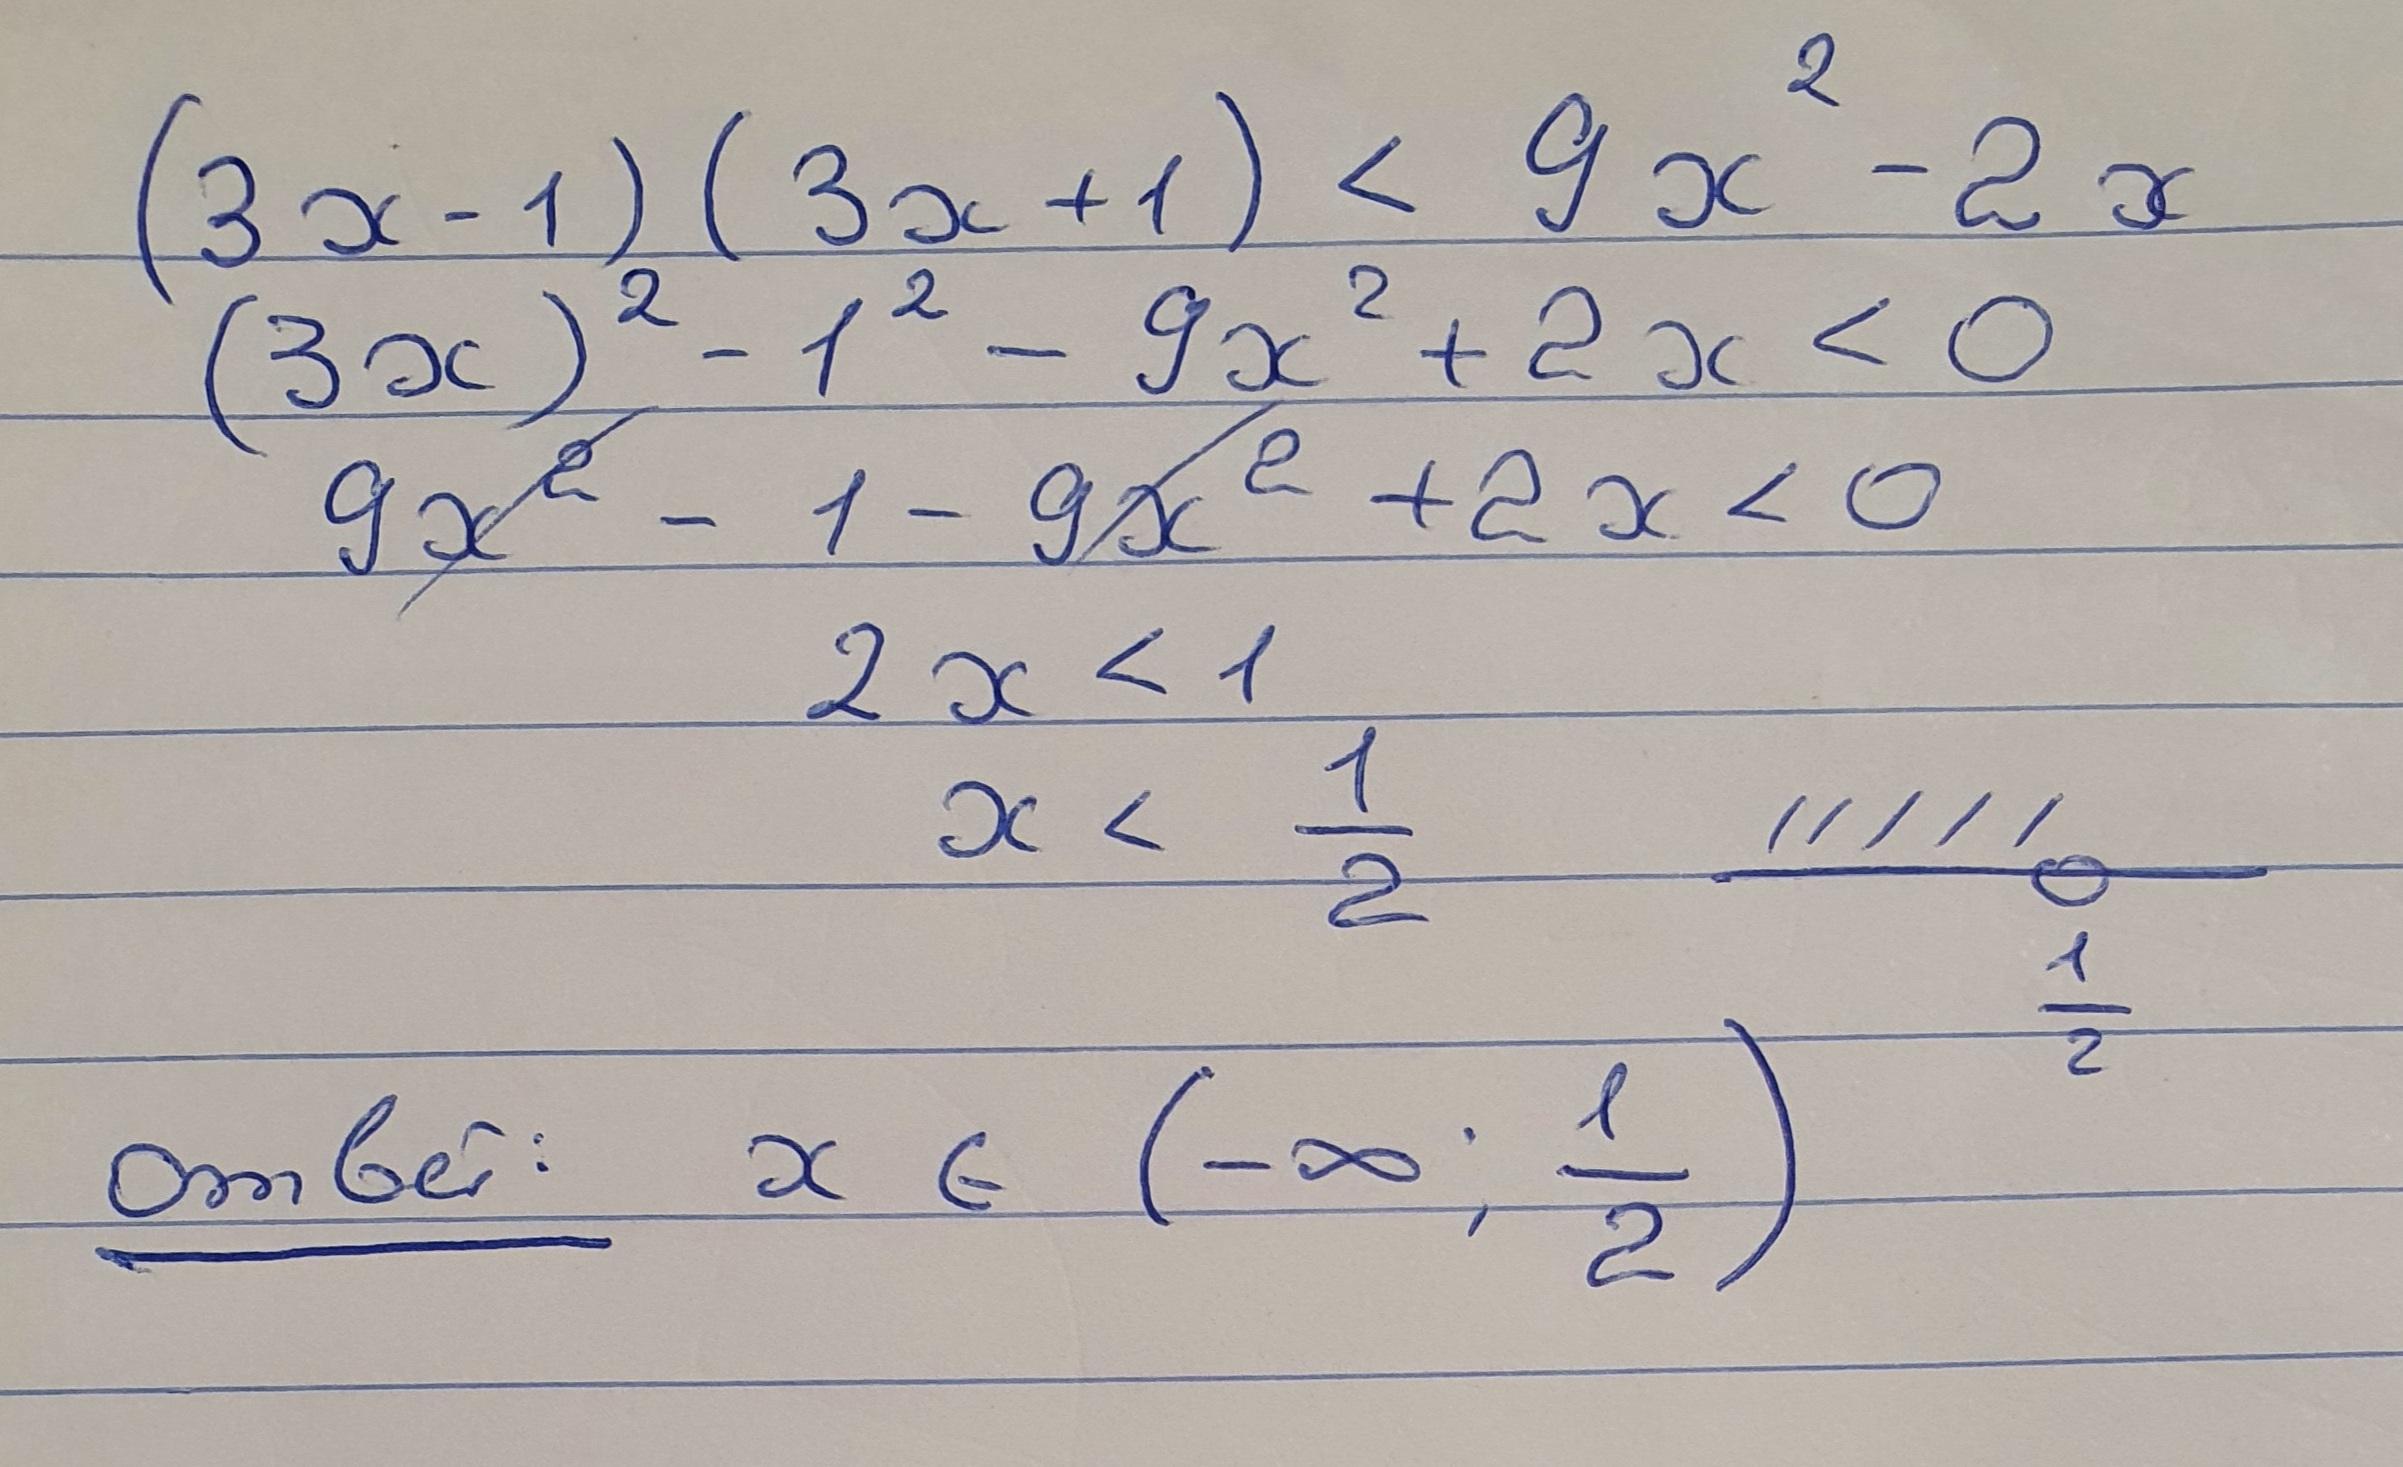 (3x-1)(3x+1) < 9x² - 2x
(3x)² - 1² - 9x² + 2x < 0
9x² - 1 - 9x² + 2x < 0
2x < 1
x < 1/2
1/2
Ответ: x ∈ (-∞; 1/2)